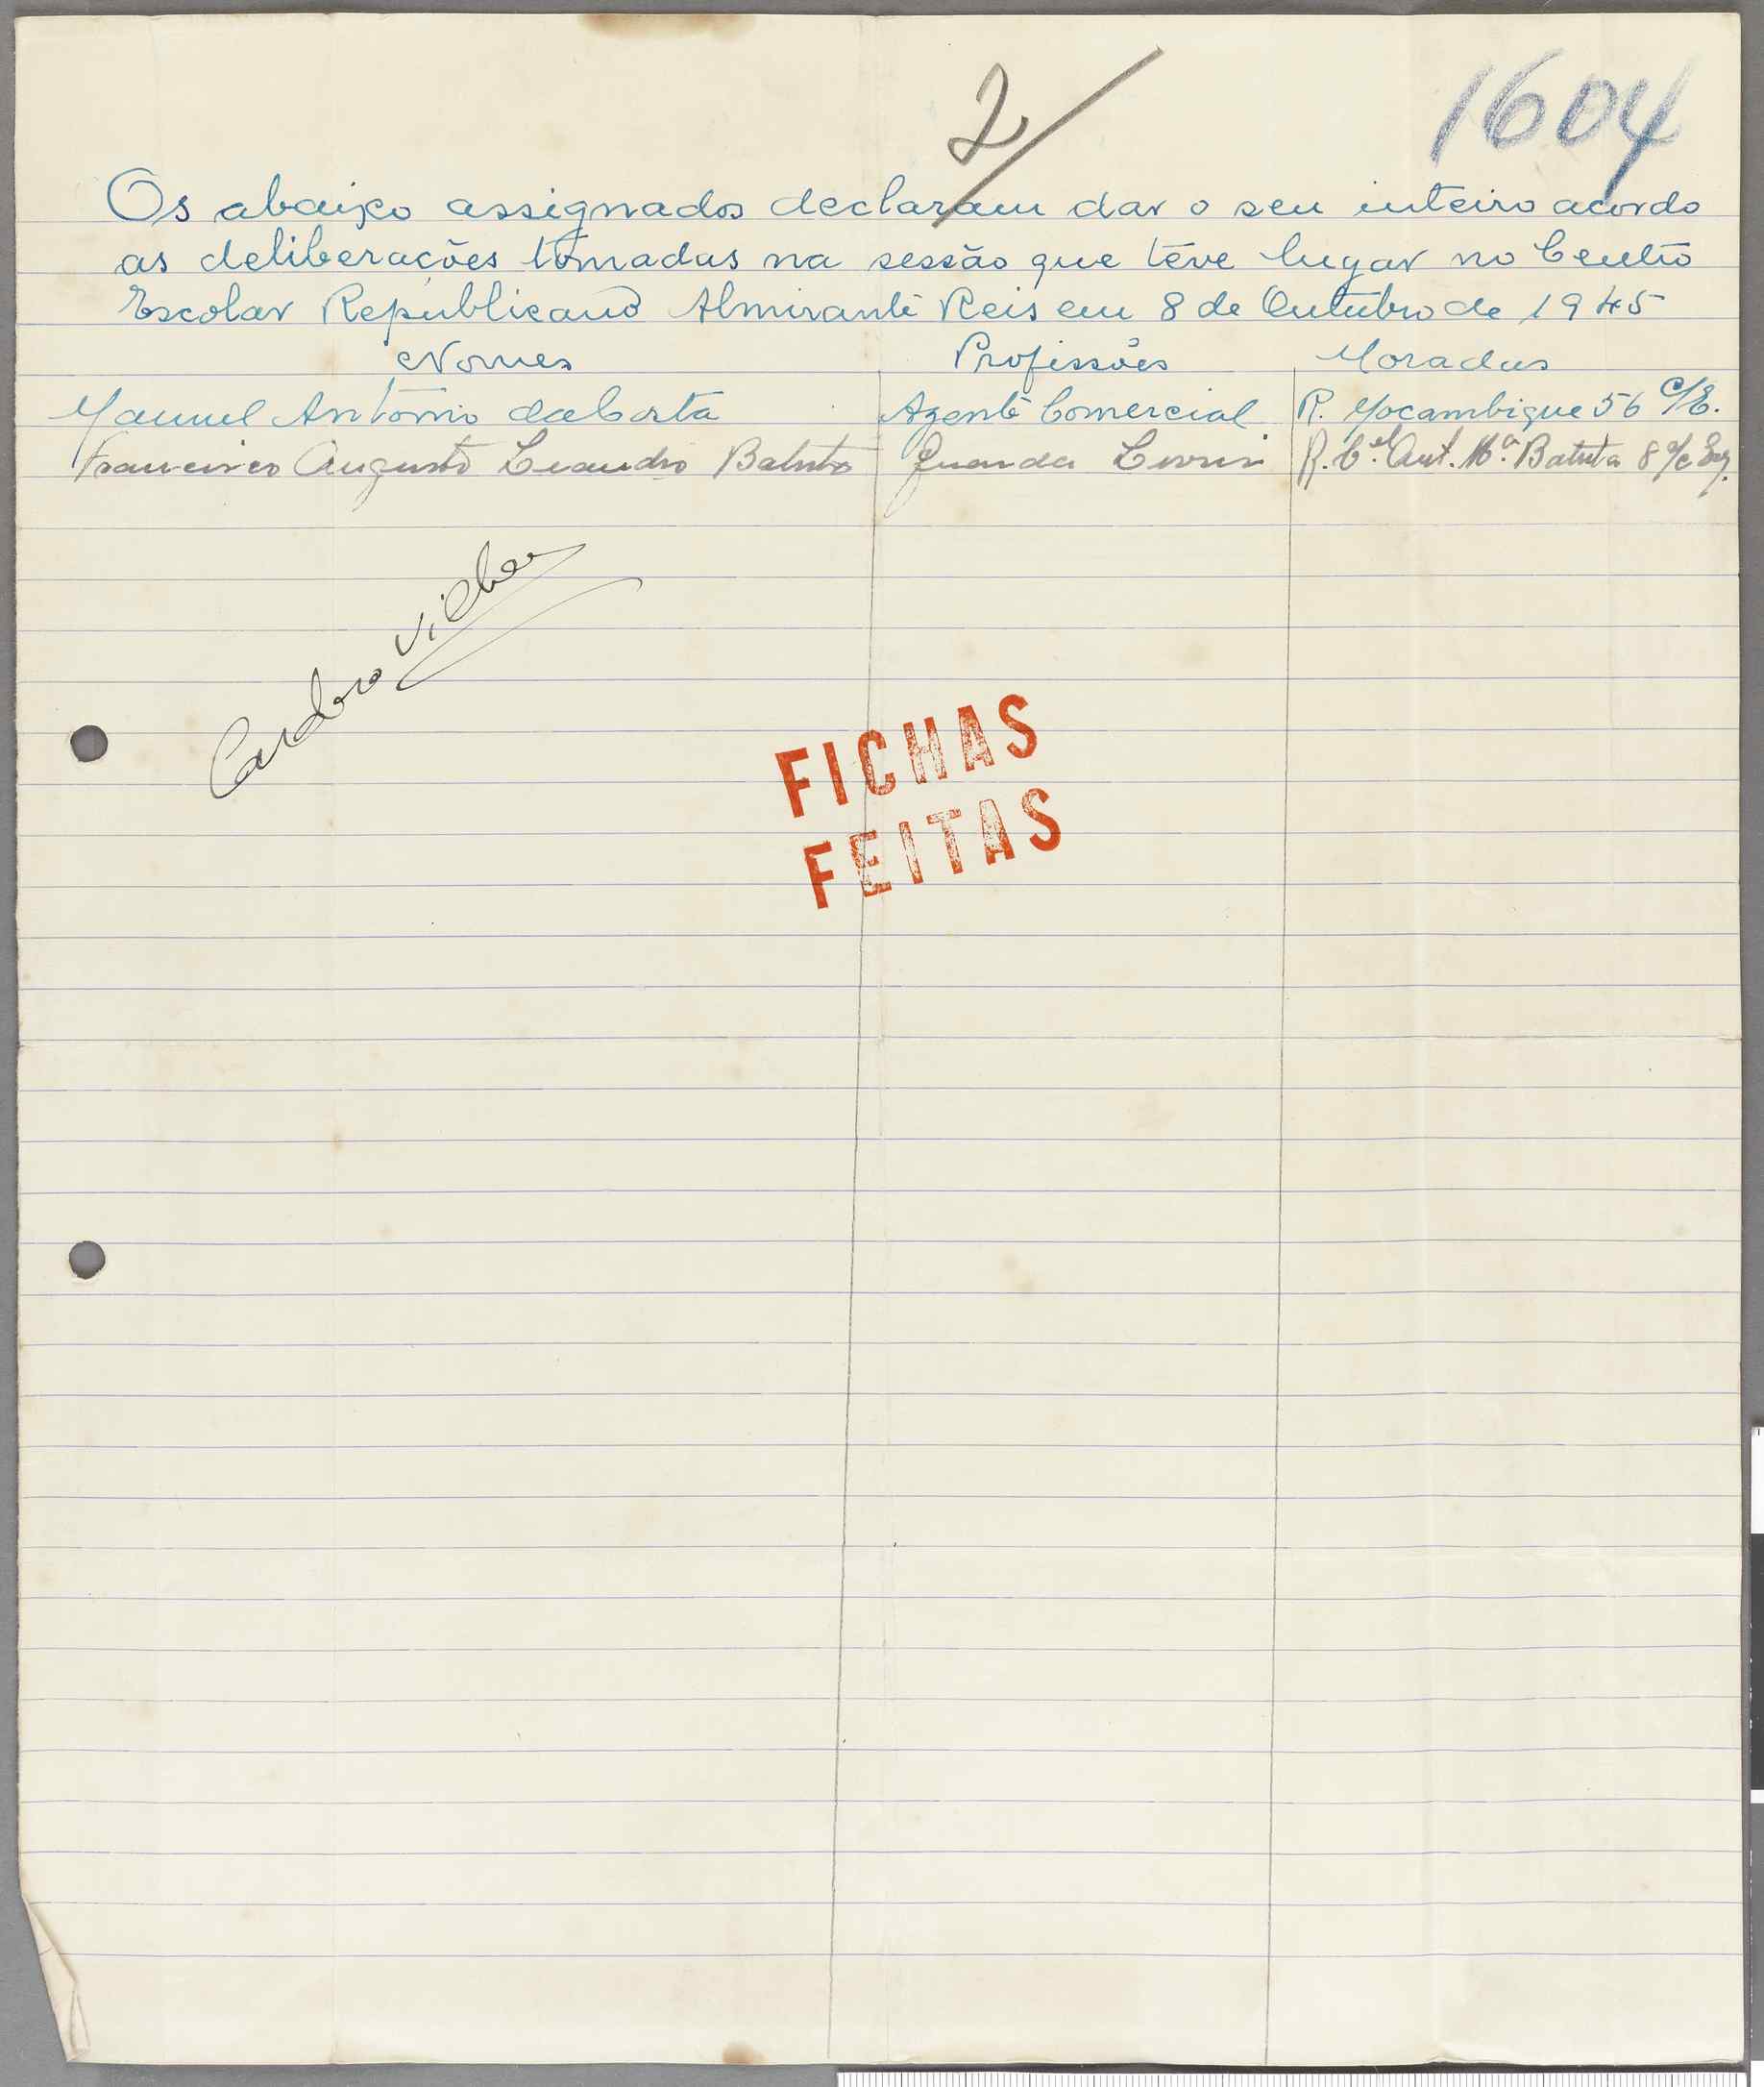 2/
1604
Os abaixo assignados declaram dar o seu inteiro acordo
as deliberações tomadas na sessão que teve lugar no Centro
Escolar Republicano Almirante Reis em 8 de Outubro de 1945
Nomes Profissões Moradas
Manuel António da Costa Agente Comercial R. Moçambique 56 c/E.
Francisco Augusto Leandro Batuta Guarda Livros R. C.el Ant. M.a Batista 8 r/c Esq.
Cardoso Vilhen
FICHAS
FEITAS